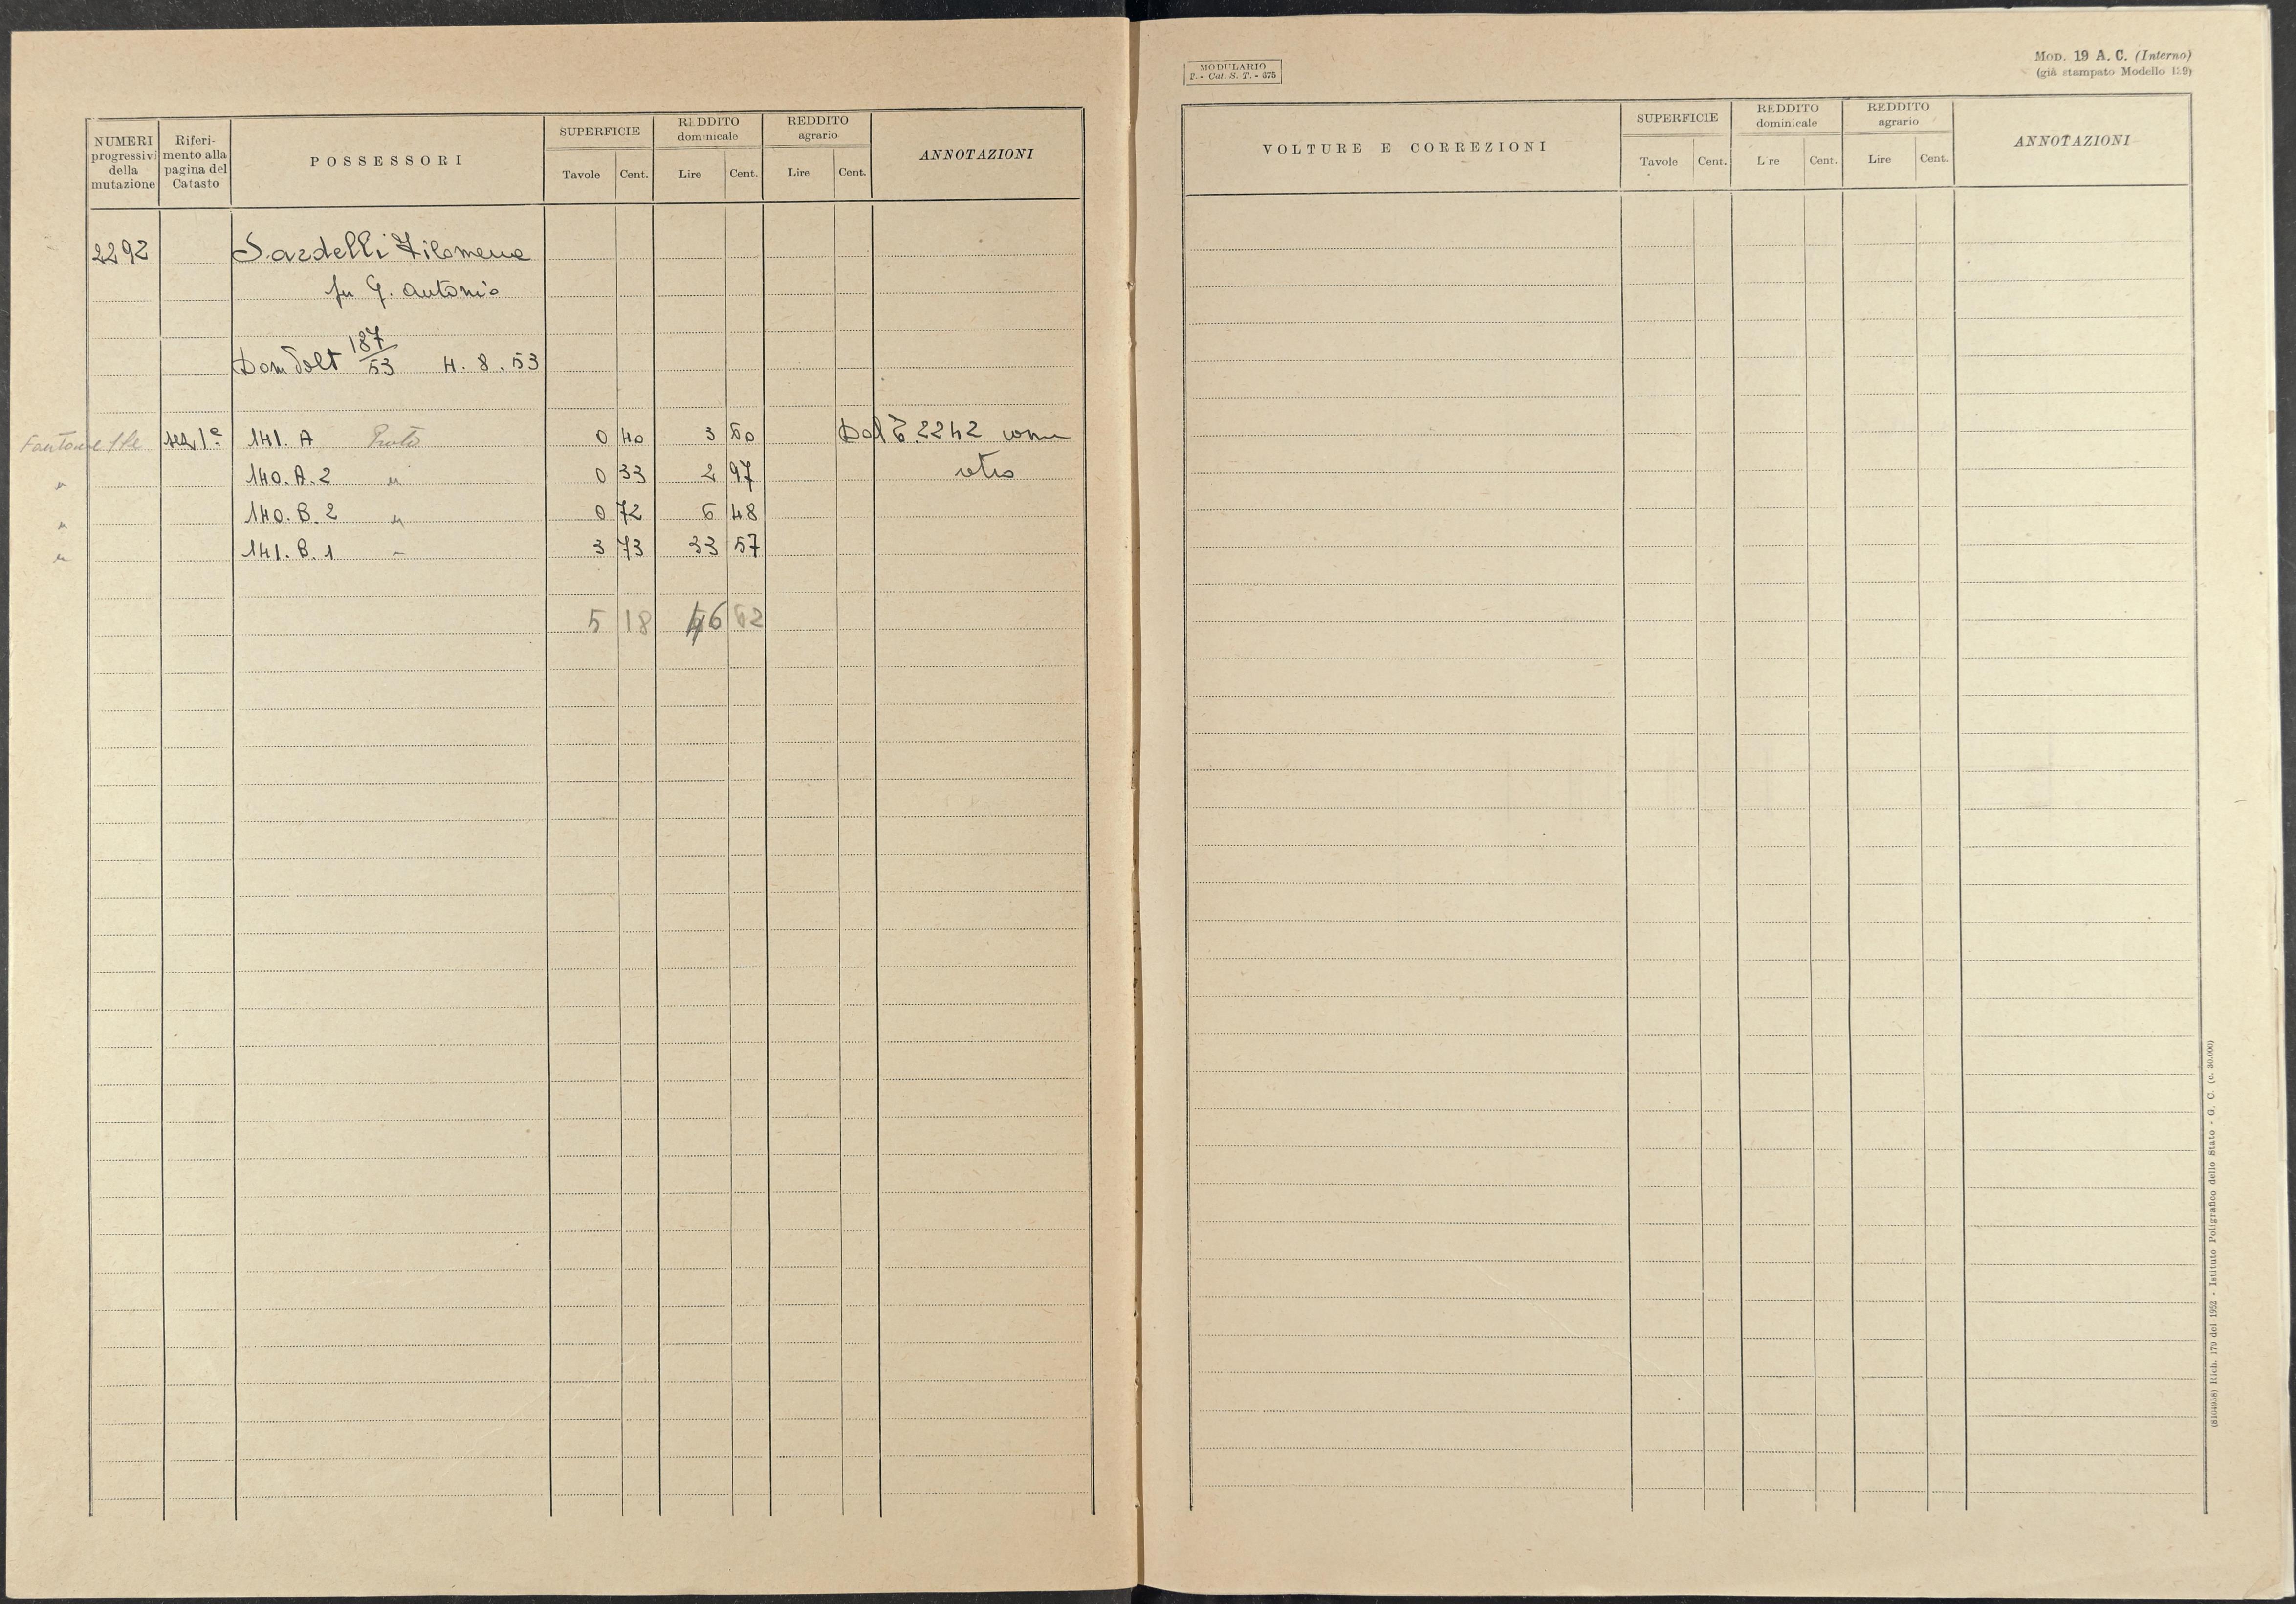 NUMERI progressivi della mutazione | Riferimento alla pagina del Catasto | POSSESSORI | SUPERFICIE Tavole Cent. | REDDITO dominicale Lire Cent. | REDDITO agrario Lire Cent. | ANNOTAZIONI
2292 Sardelli Filomena
fu G. Antonio
187/53 4.8.53
141. A 0 40 3 60 Dal 2242
140. A. 2 " 0 33 2 97 retro
140. B. 2 " 0 72 6 48
141. B. 1 " 3 73 33 57
5 18 46 62
MODULARIO
F. - Cat. S. T. - 675
MOD. 19 A. C. (Interno)
(già stampato Modello 129)
VOLTURE E CORREZIONI | SUPERFICIE Tavole Cent. | REDDITO dominicale Lire Cent. | REDDITO agrario Lire Cent. | ANNOTAZIONI
Rich. 170 del 1952 - Istituto Poligrafico dello Stato - G. C. (c. 30.000)